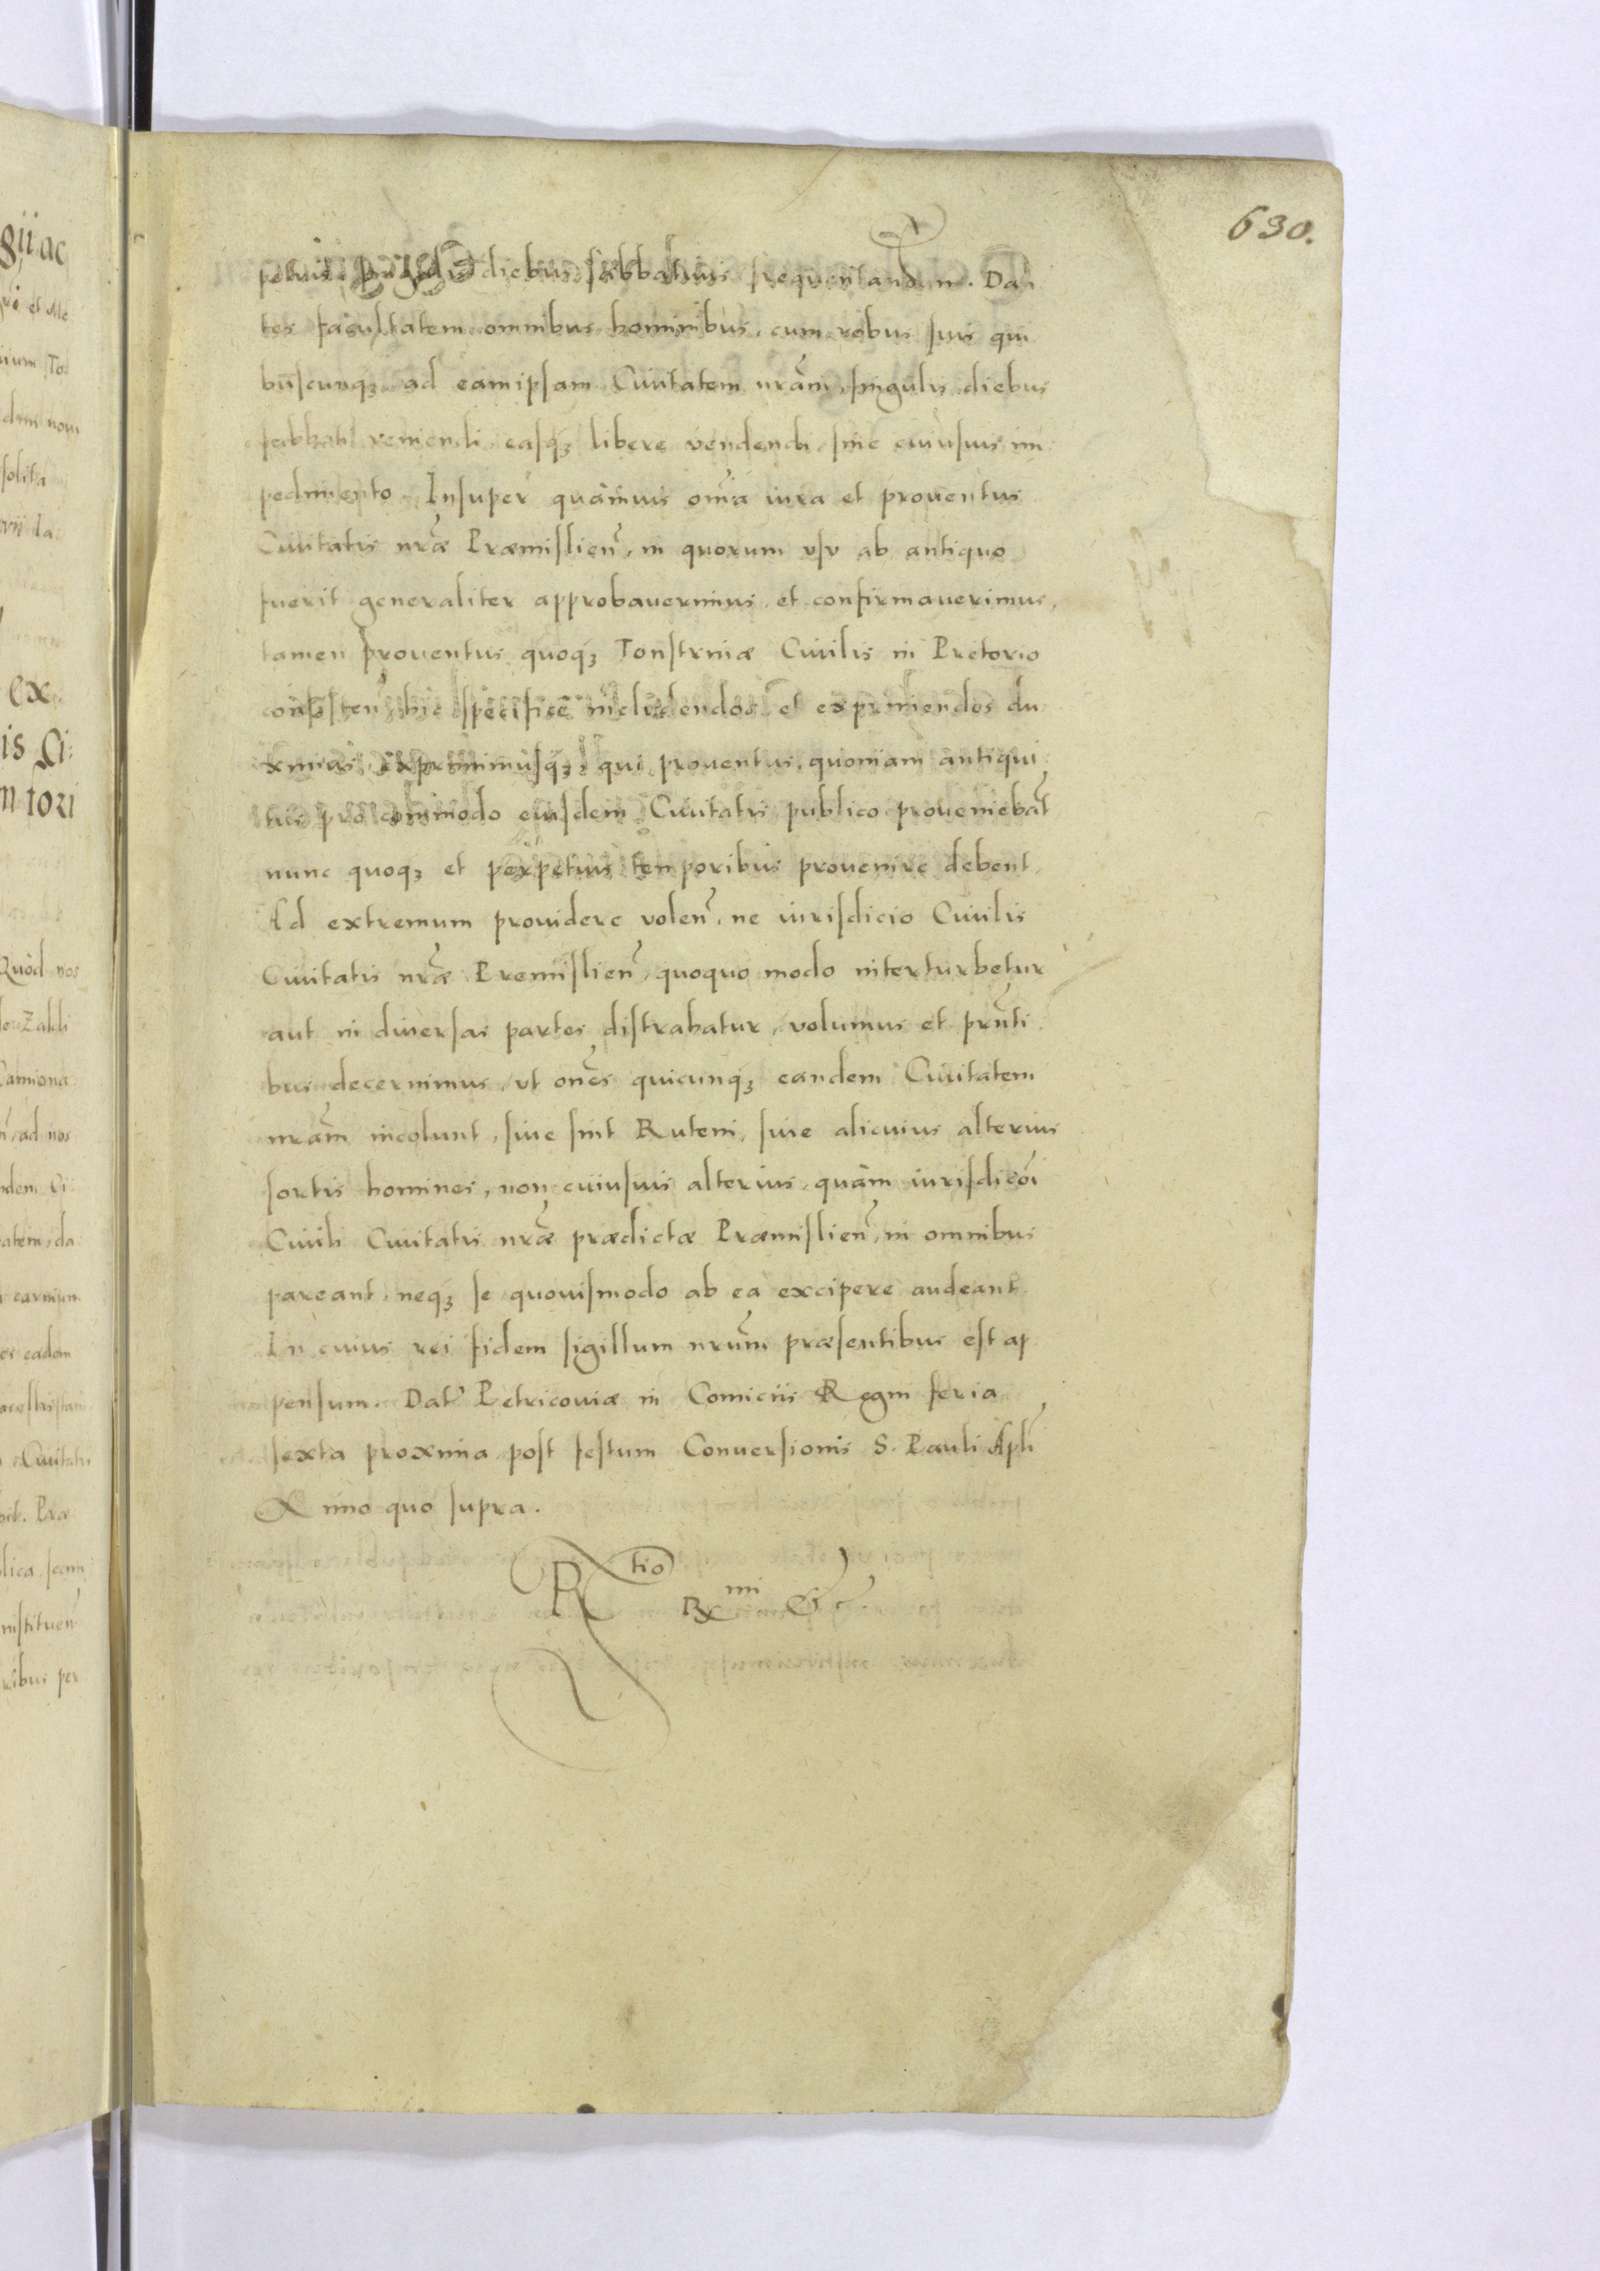 630.
petuis diebus sabbativis frequentandum. Dan
tes facultatem omnibus hominibus, cum rebus suis qui
buscunq3 ad eamipsam Civitatem nram, singulis diebus
sabbati veniendi, easq3 libere vendendi, sine cuiusuis im
pedimento. Insuper quamuis omia iura et prouentus
Ciuitatis nræ Præmislien, in quorum vsu ab antiquo
fuerit generaliter approbauerimus, et confirmauerimus,
tamen prouentus quoq3 Tonstrinæ Ciuilis in Pretorio
consisten, hic specifice includendos et exprimendos du
ximus, exprimimusq3, qui prouentus, quoniam antiqui
tus pro commodo eiusdem Ciuitatis publico proueniebat
nunc quoq3 et perpetuis temporibus prouenire debent.
Ad extremum prouidere volen, ne iurisdicio Ciuilis
Ciuitatis nræ Premislien, quoquo modo interturbetur
aut in diuersas partes distrahatur, volumus et prnti
bus decernimus, vt ones quicunq3 eandem Ciuitatem
nram incolunt, siue sint Ruteni, siue alicuius alterius
sortis homines, non cuiusuis alterius, quàm iurisdicoi
Ciuili Ciuitatis nræ prædictæ Præmislien, in omnibus
pareant, neq3 se quouismodo ab ea excipere audeant.
In cuius rei fidem sigillum nrum præsentibus est ap
pensum. Dat Petricouiæ in Comiciis Regni feria
sexta proxima post festum Conuersionis S. Pauli Apli
Anno quo supra.
Rtio Rmi &c.